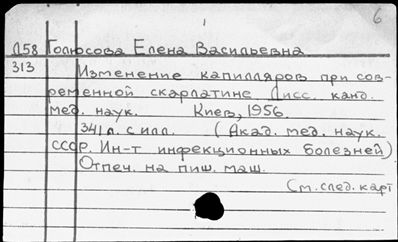 6
Д58 Голюсова Елена Васильевна
313
Изменение капилляров при сов-
ременной скарлатине Дисс. канд.
мед. наук. Киев, 1956.
341 л. с илл. (Акад. мед. наук.
СССР. Ин-т инфекционных болезней)
Отпеч. на пиш. маш.
См. след. карт